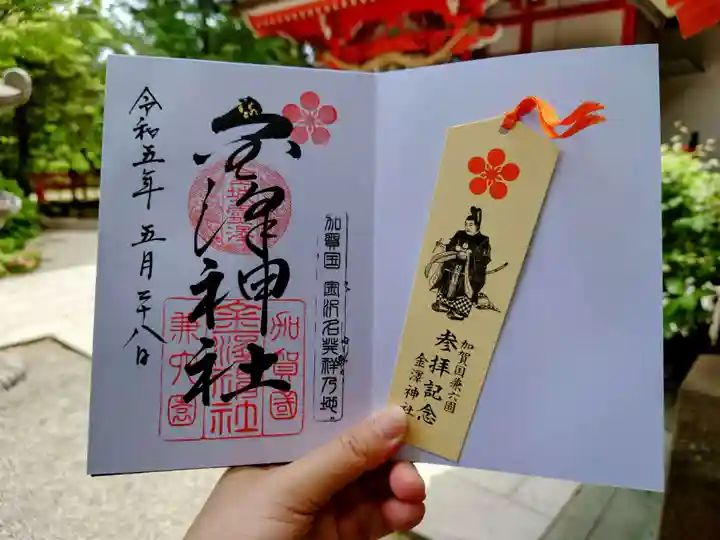 加賀国 金沢名発祥乃地
金澤神社
加賀國
金澤神社
兼六園
令和五年 五月二十八日
加賀国兼六園
金澤神社
参拝記念